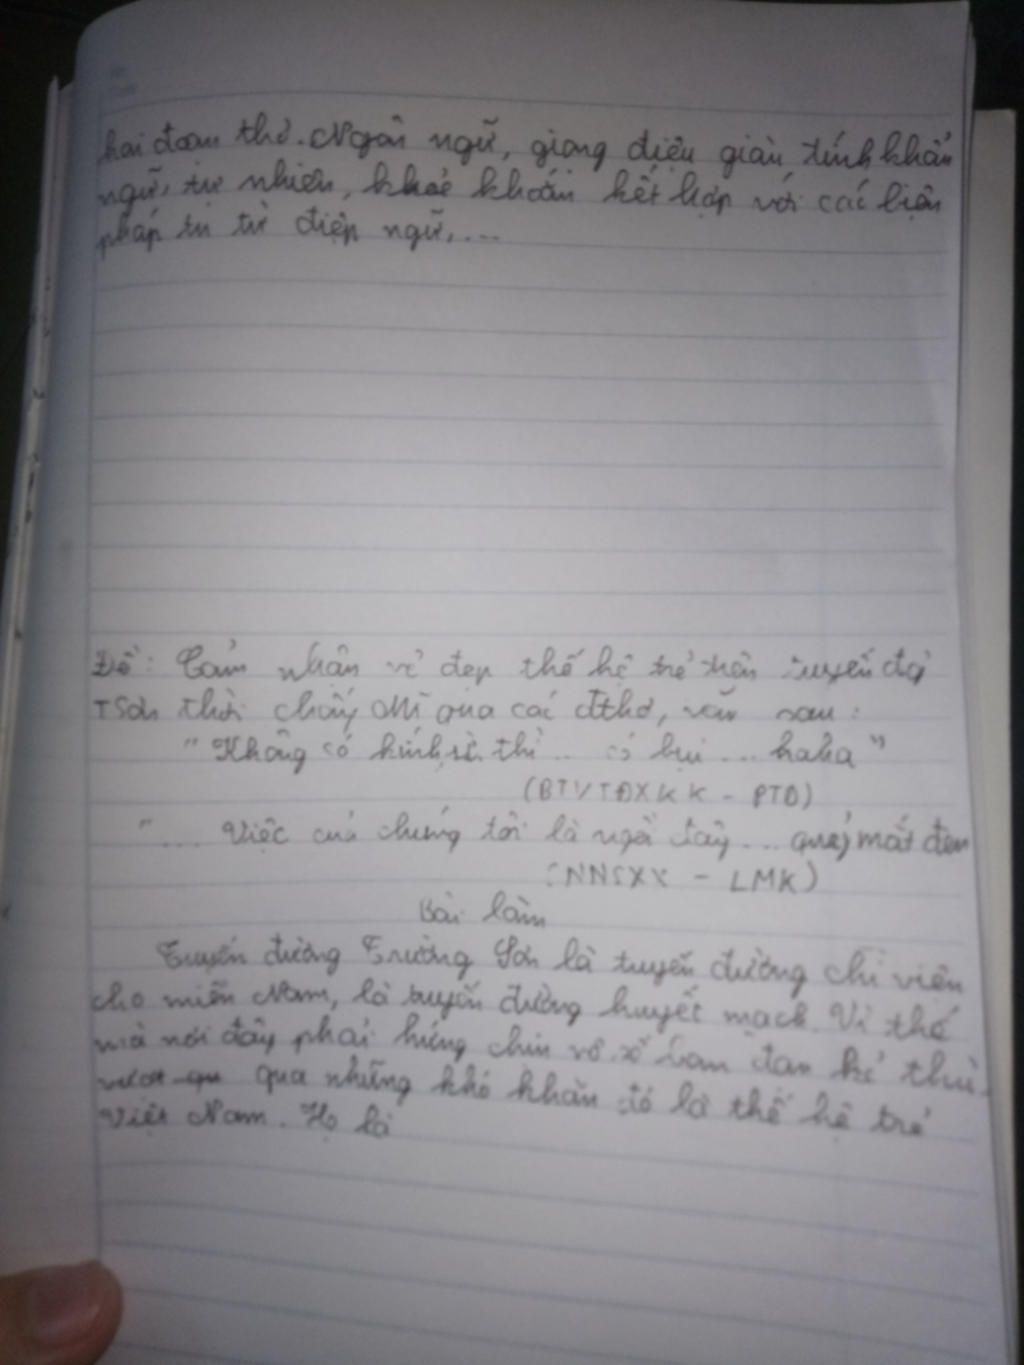 hai đoạn thơ. Ngôn ngữ, giọng điệu giàu tính khẩu
ngữ, tự nhiên, khoẻ khoắn kết hợp với các biện
pháp tu từ điệp ngữ,...
Đề: Cảm nhận vẻ đẹp thế hệ trẻ trên tuyến đg
TSơn thời chống Mĩ qua các đthơ, văn sau:
"Không có kính, ừ thì .. có bụi ... haha"
(BTVTĐXKK - PTD)
"... Việc của chúng tôi là ngồi đây ... quý mắt đen
(NNSXX - LMK)
Bài làm
Tuyến đường Trường Sơn là tuyến đường chi viện
cho miền Nam, là tuyến đường huyết mạch. Vì thế
mà nơi đây phải hứng chịu vô số bom đạn kẻ thù.
qua những khó khăn đó là thế hệ trẻ
Việt Nam. Họ là